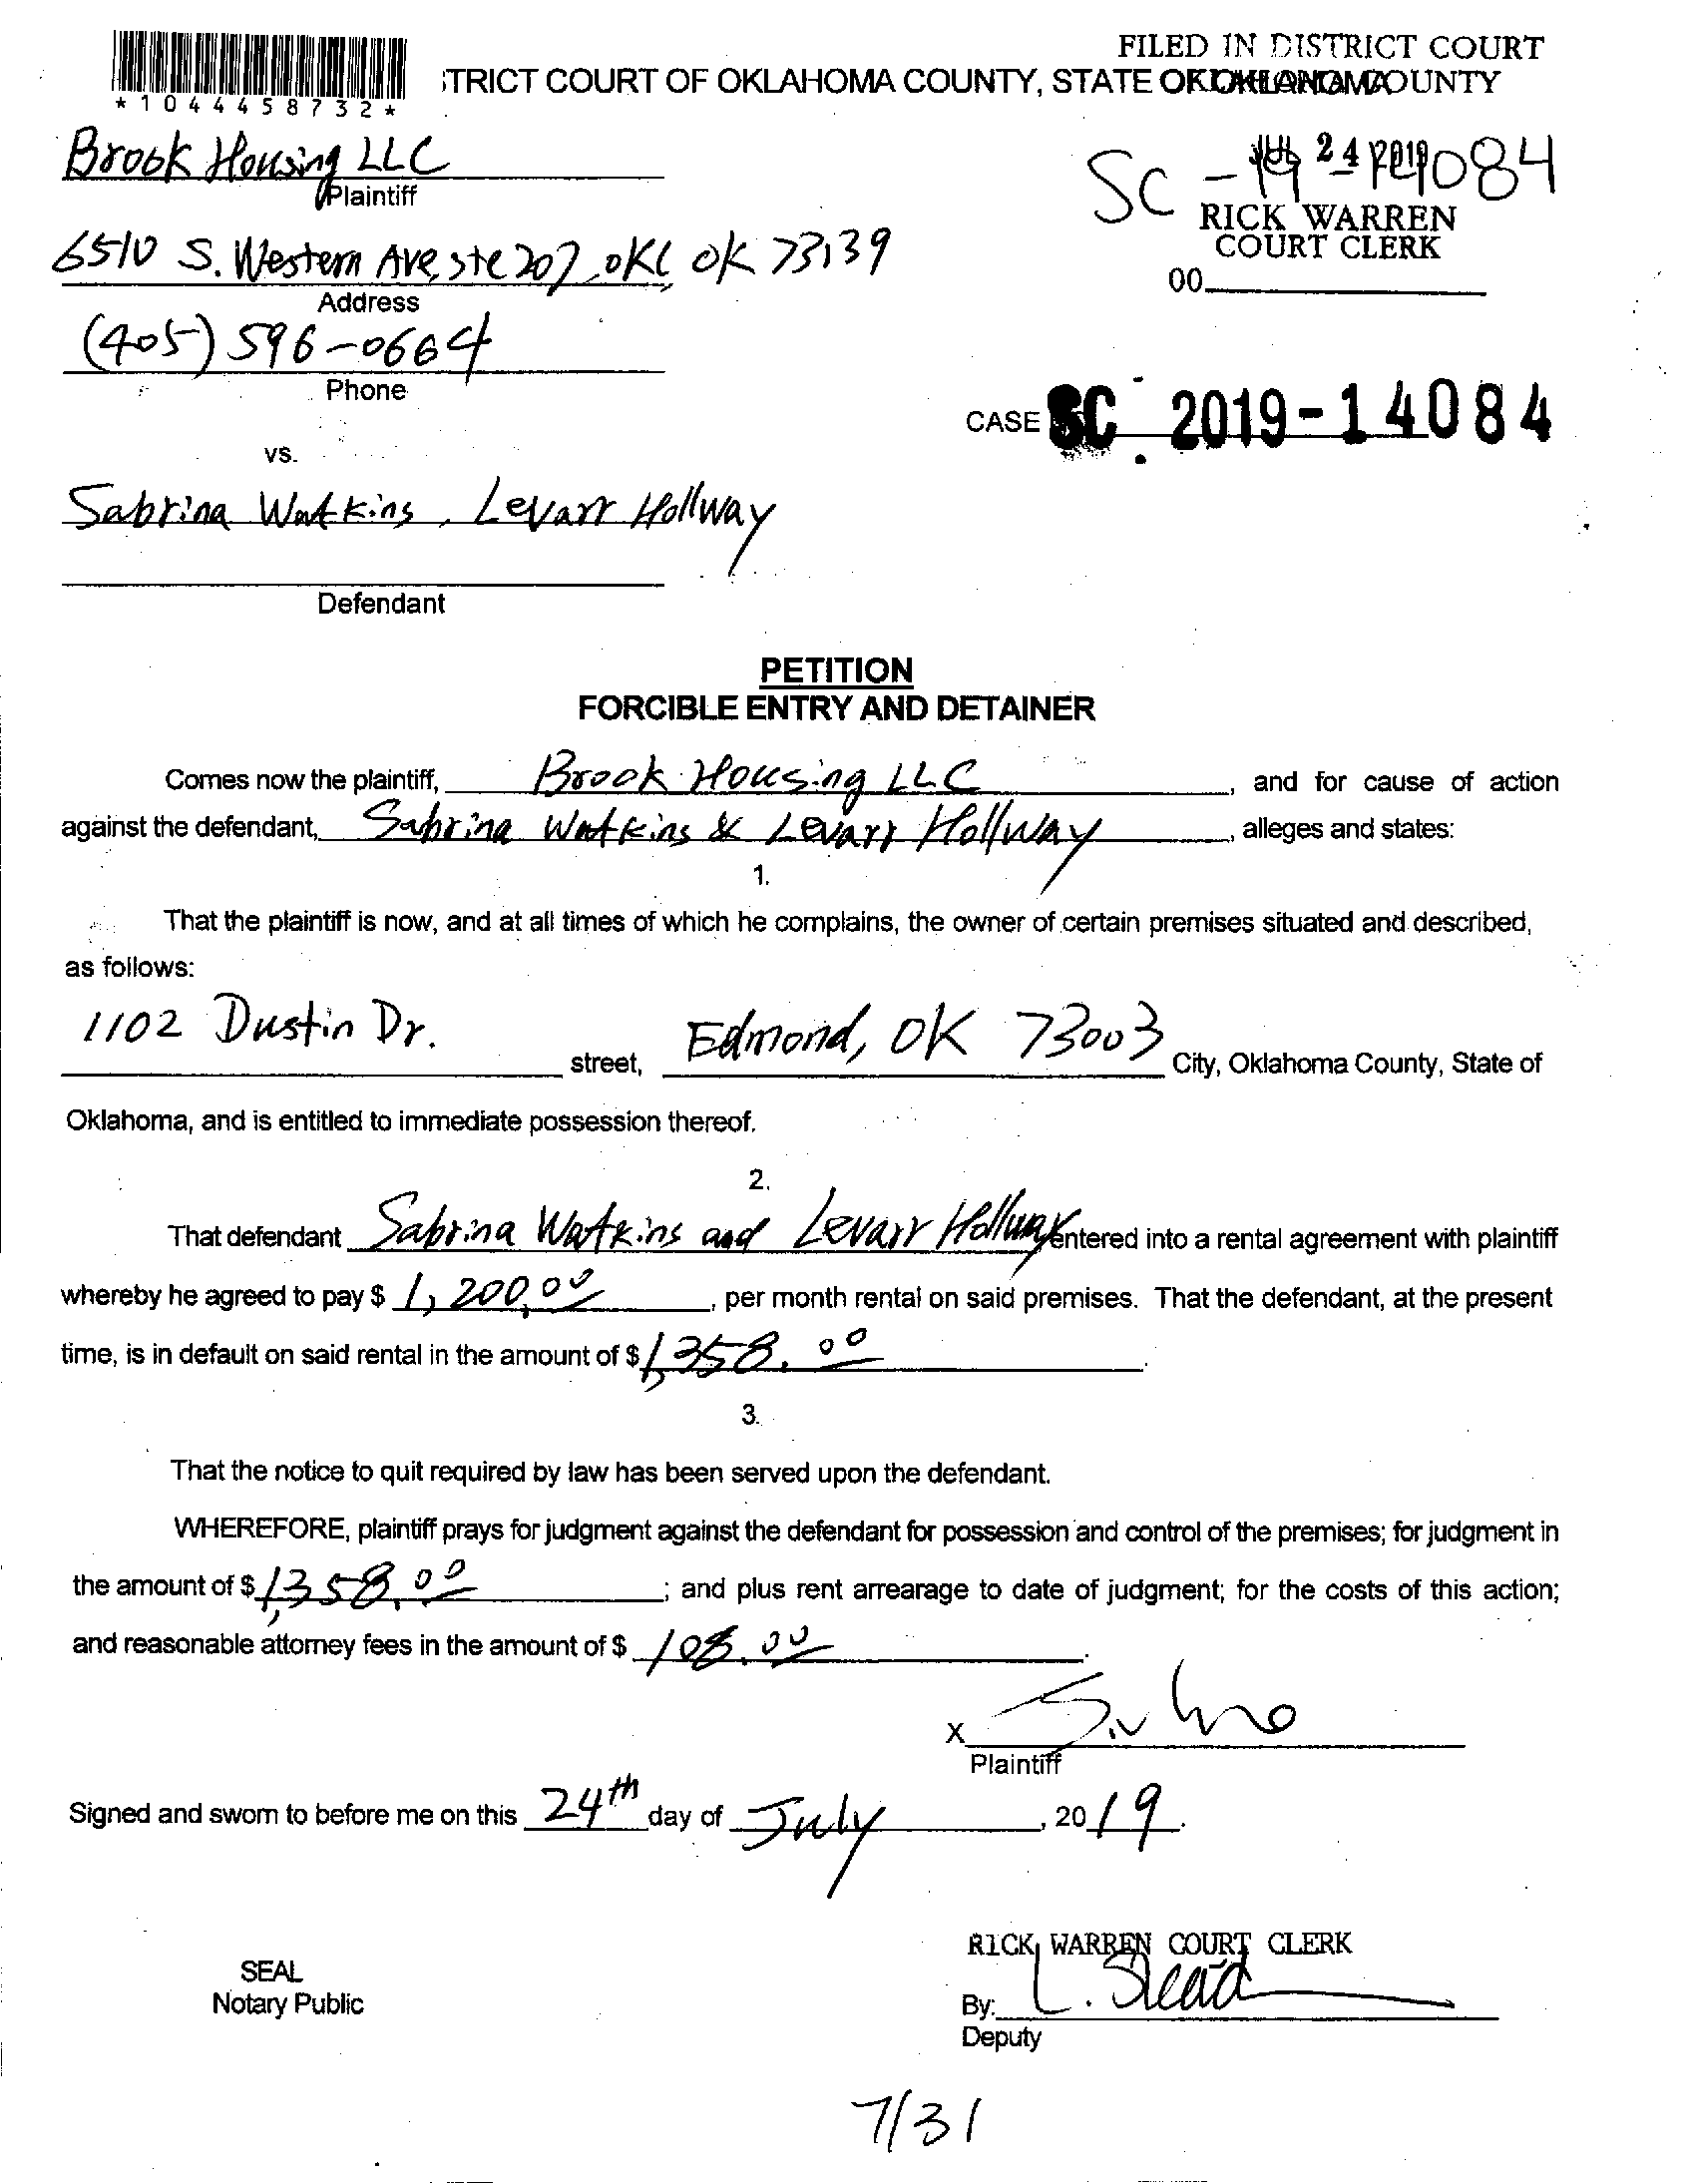 FILED IN DISTRICT COURT
TRICT COURT OF OKLAHOMA COUNTY, STATE OF OKLAHOMA COUNTY
*1044458732*
Brook Housing LLC
Plaintiff
SC - 19 - 14084
JUL 24 2019
RICK WARREN
COURT CLERK
6510 S. Western Ave, ste 207, OKC, OK 73139
00
Address
(405) 596-0664
Phone
CASE SC 2019-14084
vs.
Sabrina Watkins, Levarr Hollway
Defendant
PETITION
FORCIBLE ENTRY AND DETAINER
Comes now the plaintiff, Brook Housing LLC, and for cause of action
against the defendant, Sabrina Watkins & Levarr Hollway, alleges and states:
1.
That the plaintiff is now, and at all times of which he complains, the owner of certain premises situated and described,
as follows:
1102 Dustin Dr. street, Edmond, OK 73003 City, Oklahoma County, State of
Oklahoma, and is entitled to immediate possession thereof.
2.
That defendant Sabrina Watkins and Levarr Hollway entered into a rental agreement with plaintiff
whereby he agreed to pay $ 1,200.00, per month rental on said premises. That the defendant, at the present
time, is in default on said rental in the amount of $ 1,358.00.
3.
That the notice to quit required by law has been served upon the defendant.
WHEREFORE, plaintiff prays for judgment against the defendant for possession and control of the premises; for judgment in
the amount of $ 1,358.00; and plus rent arrearage to date of judgment; for the costs of this action;
and reasonable attorney fees in the amount of $ 108.00.
X
Plaintiff
Signed and sworn to before me on this 24th day of July, 2019.
RICK WARREN COURT CLERK
SEAL
Notary Public
By:
Deputy
7/31